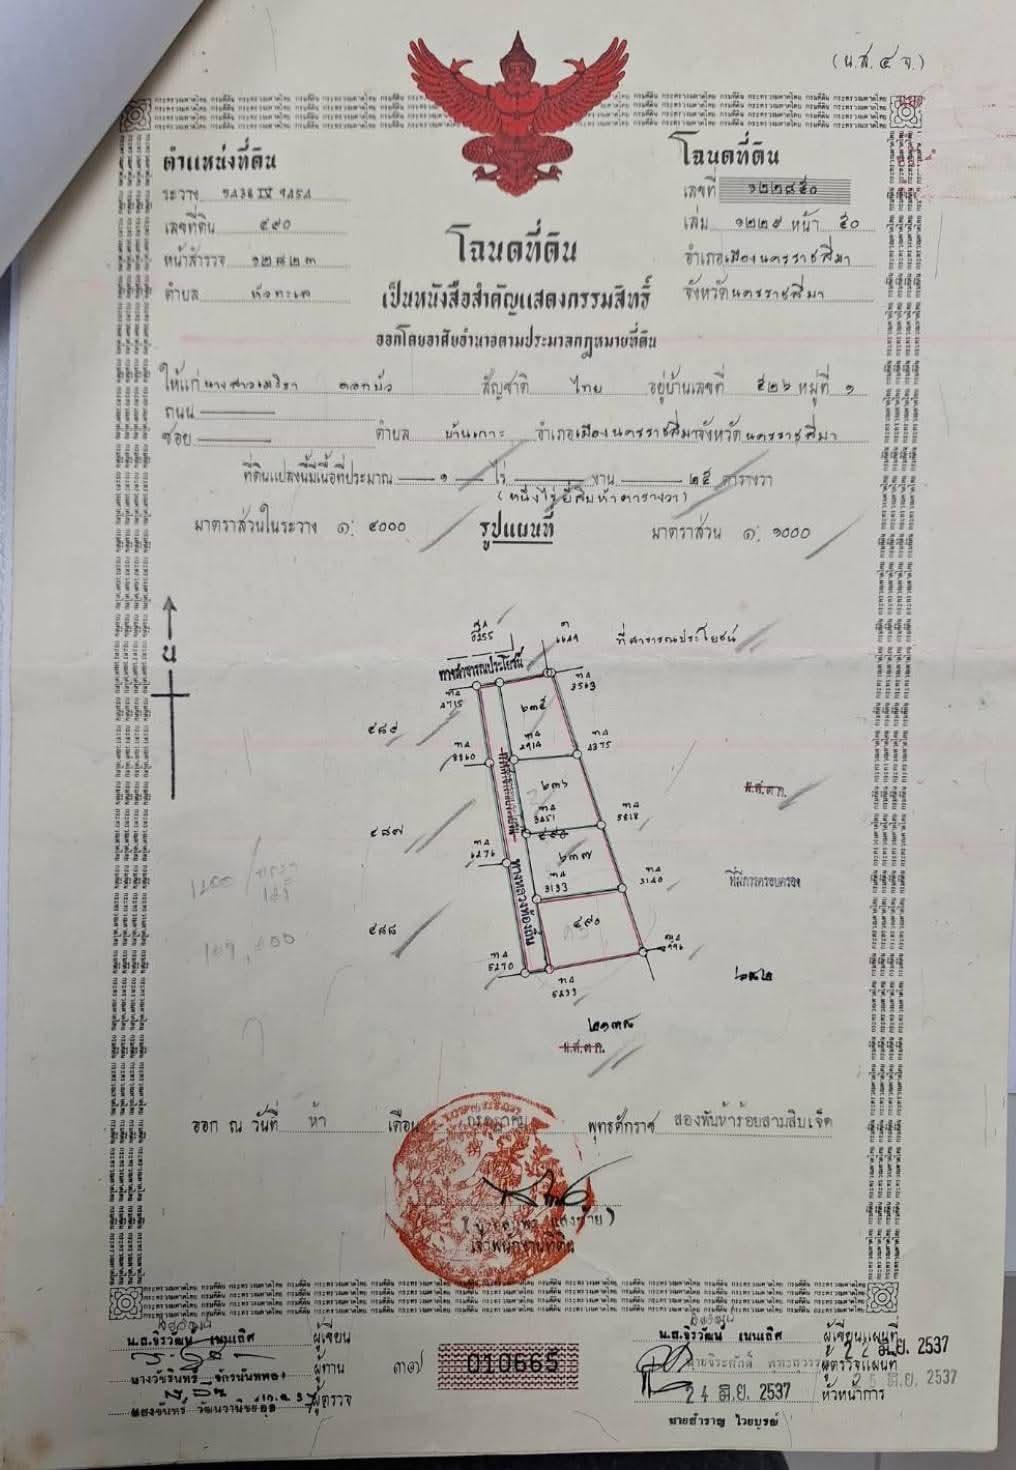 (น.ส. ๔ จ.)
ตำแหน่งที่ดิน
ระวาง 5438 IV
เลขที่ดิน ๔๙๐
หน้าสำรวจ ๑๒๘๒๓
ตำบล หัวทะเล
โฉนดที่ดิน
เลขที่ ๑๒๒๘๕๐
เล่ม ๑๒๒๙ หน้า ๕๐
อำเภอเมืองนครราชสีมา
จังหวัดนครราชสีมา
โฉนดที่ดิน
เป็นหนังสือสำคัญแสดงกรรมสิทธิ์
ออกโดยอาศัยอำนาจตามประมวลกฎหมายที่ดิน
ให้แก่ นางสาวเมธิรา ดอกบัว สัญชาติ ไทย อยู่บ้านเลขที่ ๕๒๖ หมู่ที่ ๑
ถนน
ซอย ตำบล บ้านเกาะ อำเภอเมืองนครราชสีมา จังหวัดนครราชสีมา
ที่ดินแปลงนี้มีเนื้อที่ประมาณ ๑ ไร่ งาน ๒๕ ตารางวา
(หนึ่งไร่ยี่สิบห้าตารางวา)
มาตราส่วนในระวาง ๑: ๔๐๐๐ รูปแผนที่ มาตราส่วน ๑: ๑๐๐๐
น
ที่สาธารณประโยชน์
ทางสาธารณประโยชน์
4715
3563
๖๓๕
๔๘๙
2914
4375
8860
๖๓๖
น.ส.๓ก.
3451
5818
๔๘๗
๔๙๐
6276
๖๓๗
3133
3140
ที่มีการครอบครอง
ทางหลวงท้องถิ่น
๔๘๘
๔๙๐
5270
5233
๒๑๓๘
น.ส.๓ก.
ออก ณ วันที่ ห้า เดือน กรกฎาคม พุทธศักราช สองพันห้าร้อยสามสิบเจ็ด
เจ้าพนักงานที่ดิน
น.ส.จิรวัฒน์ เนนเลิศ ผู้เขียน
ผู้ทาน
ผู้ตรวจ
๓๗)
010665
น.ส.จิรวัฒน์ เนนเลิศ ผู้เขียนแผนที่ 22 มิ.ย. 2537
ผู้ตรวจแผนที่
24 มิ.ย. 2537 หัวหน้าการ
นายสำราญ ไวยบูรณ์